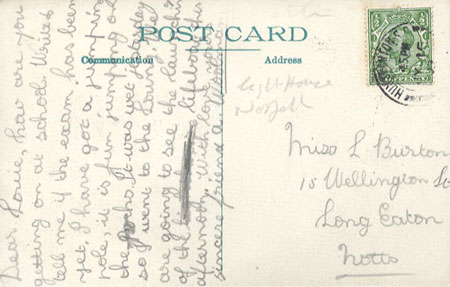 POST CARD
Communication
Address
Light House
Norfolk
Miss L Burton
15 Wellington St
Long Eaton
Notts
Dear Louie, how are you
getting on at school. Write &
tell me if the exam has been
yet, I have got a jumping
hole, it is fun jumping on
the rocks. It was wet today
so I went to the Lounge. We
are going to see the launching
of the lifeboat this
afternoon. With love from your
sincere friend